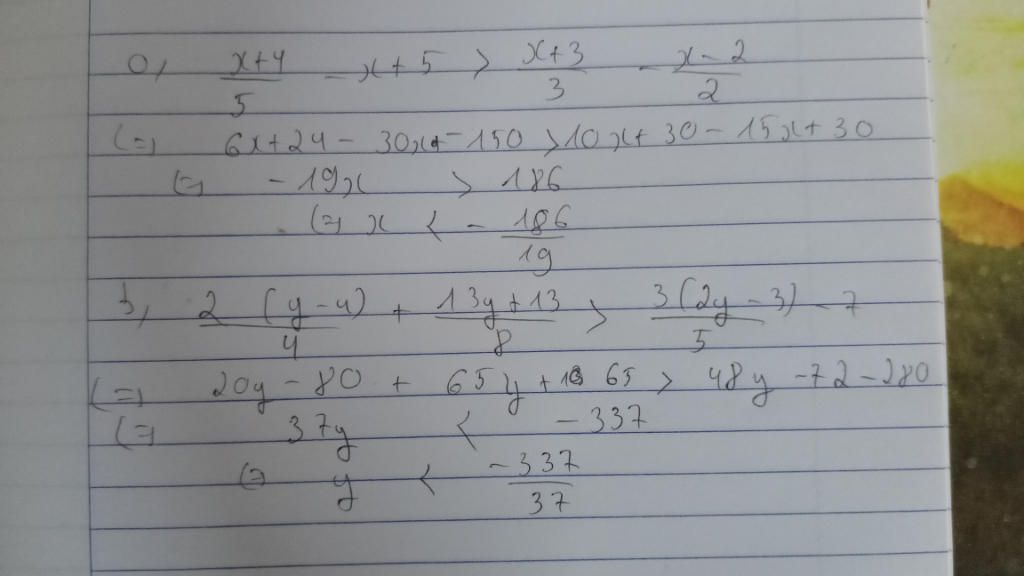 a, (x+4)/5 - x + 5 > (x+3)/3 - (x-2)/2
(=) 6x + 24 - 30x - 150 > 10x + 30 - 15x + 30
(=) - 19x > 186
(=) x < - 186/19
b, 2(y-4)/4 + (13y+13)/8 > 3(2y-3)/5 - 7
(=) 20y - 80 + 65y + 65 > 48y - 72 - 280
(=) 37y < - 337
(=) y < -337/37